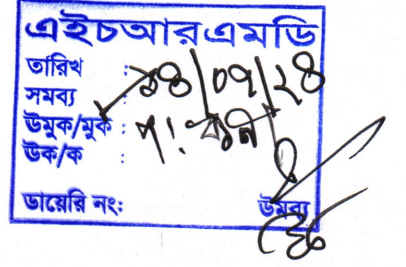 এইচআরএমডি
তারিখ : ১৪/০৭/২৪
সমব্য :
উমুক/মুক :
উক/ক :
ডায়েরি নং: উমব্য